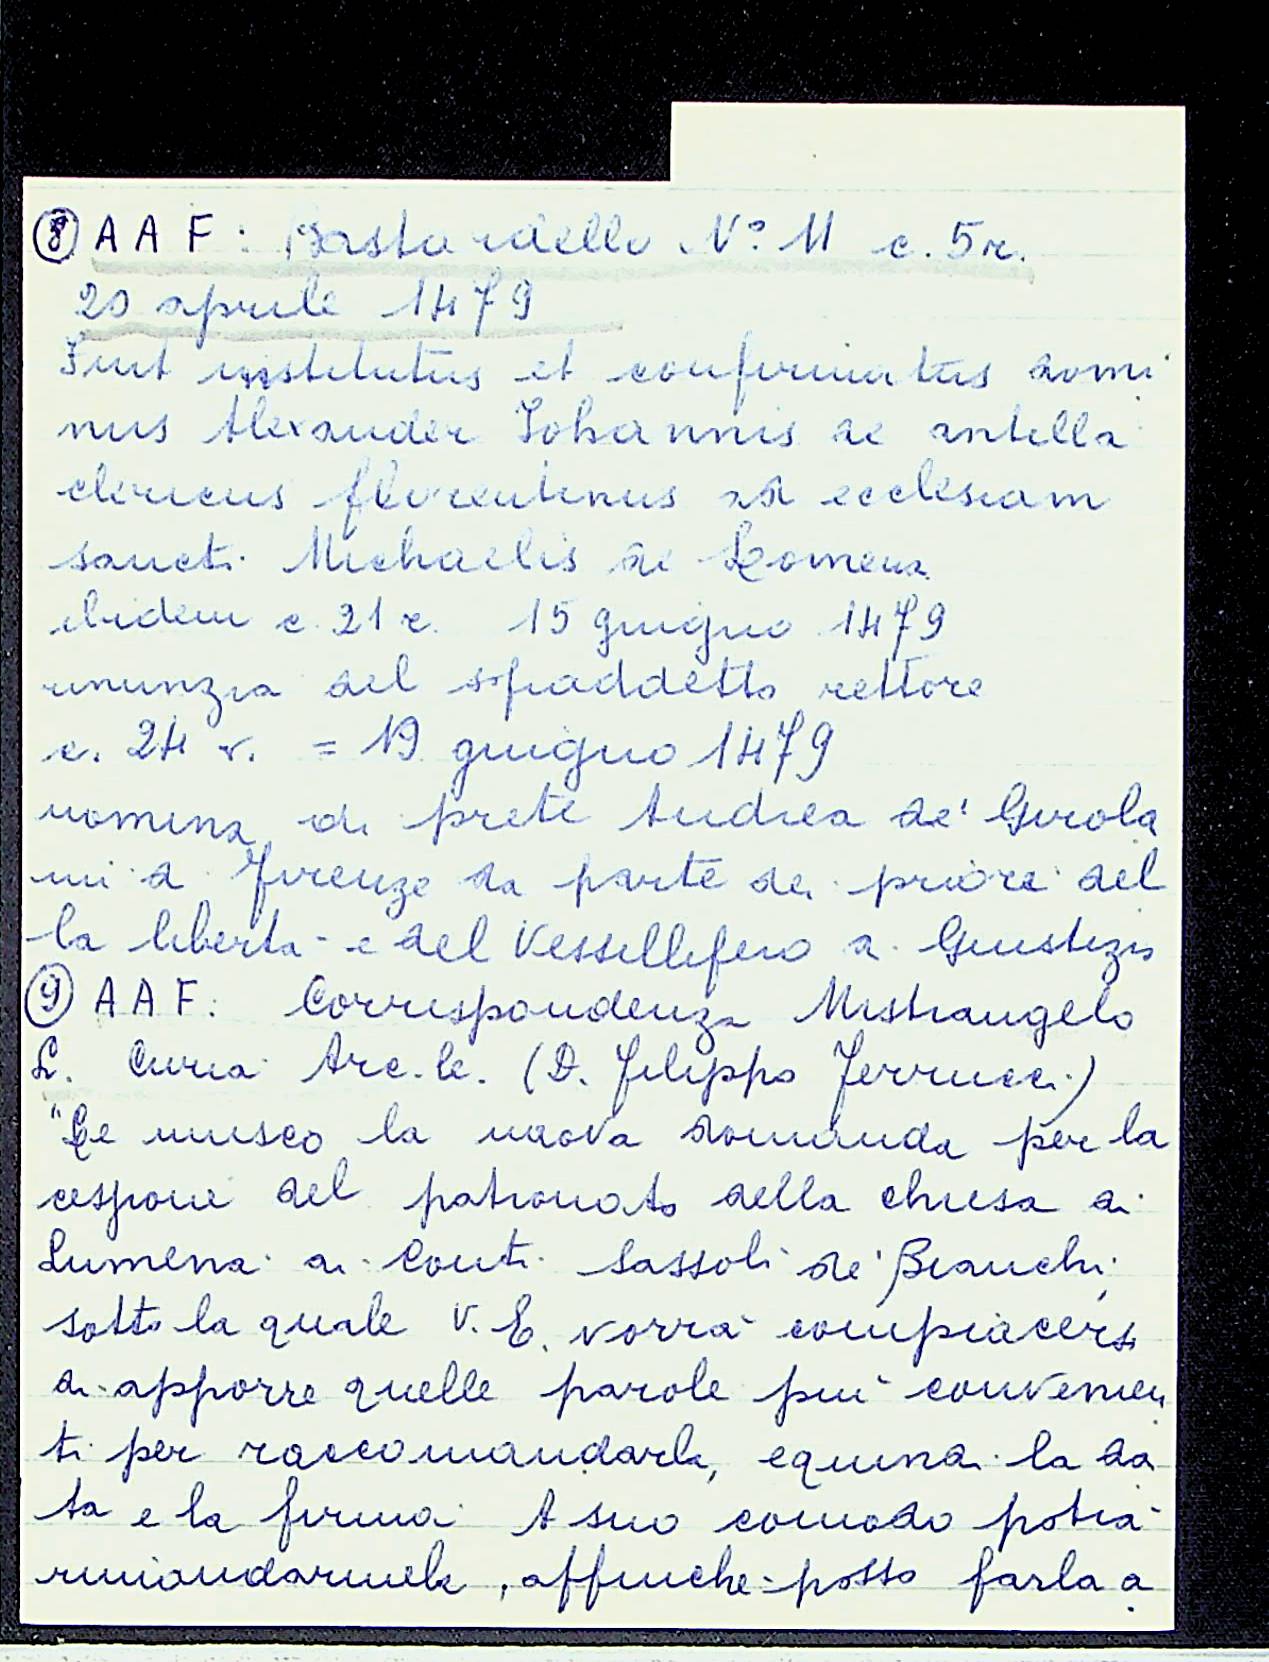 ⑧ A A F : Bastardello N° 11 c. 5r.
20 aprile 1479
Fuit institutus et confirmatus domi
nus Alexander Johannis de antella
clericus florentinus ad ecclesiam
sancti Michaelis de Lomena
ibidem c. 21 r. 15 giugno 1479
rinunzia del sopraddetto rettore
c. 24 v. = 19 giugno 1479
nomina di prete Andrea de' Girola
mi di Firenze da parte dei priori del
la libertà e del Vessillifero di Giustizia
⑨ A A F : Corrispondenza Mistrangelo
L. Curia Arc.le. (D. Filippo Ferrucci)
"Le unisco la nuova domanda per la
cessione del patronato della chiesa di
Lumena ai Conti Sassoli de' Bianchi,
sotto la quale V. E. vorrà compiacersi
di apporre quelle parole più convenien
ti per raccomandarla, e quindi la da
ta e la firma. A suo comodo potrà
rimandarmela, affinché possa farla a